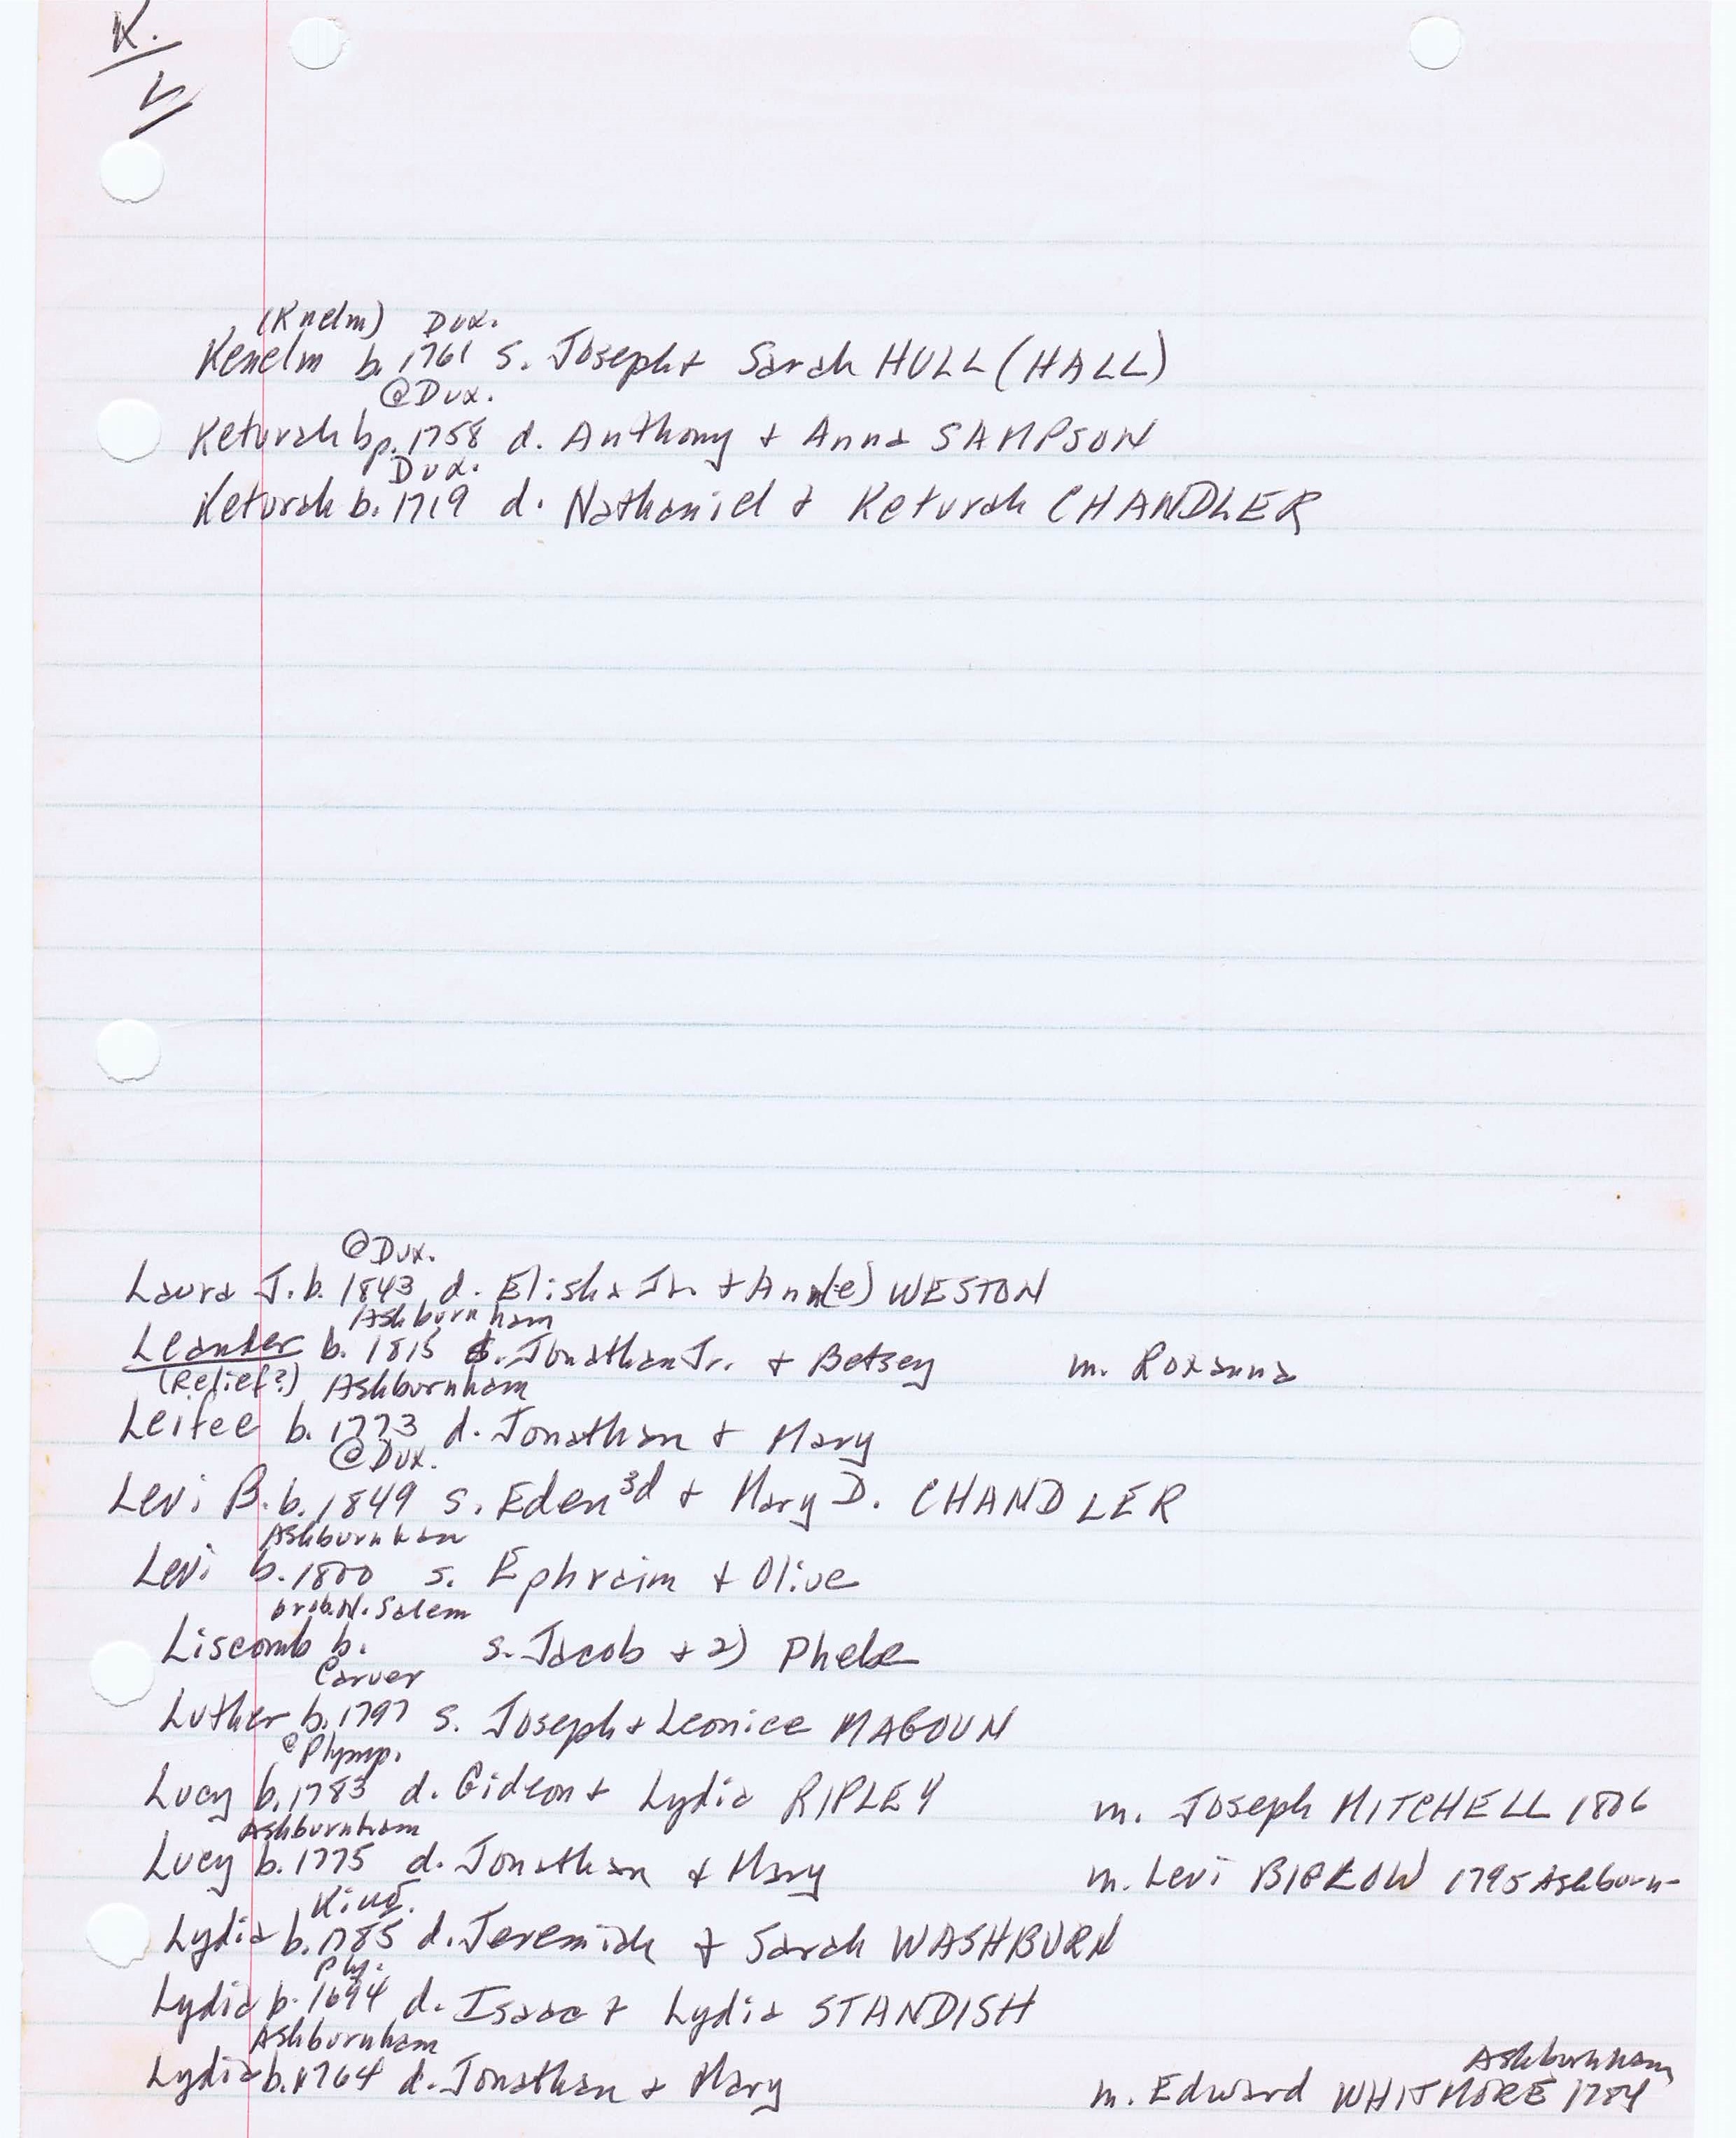 K.
L
(Knelm) Dux.
Kenelm b. 1761 s. Joseph + Sarah HULL (HALL)
@Dux.
Keturah bp. 1758 d. Anthony + Anna SAMPSON
Dux.
Keturah b. 1719 d. Nathaniel + Keturah CHANDLER
@Dux.
Laura J. b. 1843 d. Elisha Jr. + Ann(e) WESTON
Ashburnham
Leander b. 1815 s. Jonathan Jr. + Betsey m. Roxanna
(Relief?) Ashburnham
Leifee b. 1773 d. Jonathan + Mary
@Dux.
Levi B. b. 1849 s. Eden 3d + Mary D. CHANDLER
Ashburnham
Levi b. 1800 s. Ephraim + Olive
prob. N. Salem
Liscomb b. s. Jacob + 2) Phebe
Carver
Luther b. 1797 s. Joseph + Leonice MAGOUN
@Plymp.
Lucy b. 1783 d. Gideon + Lydia RIPLEY m. Joseph MITCHELL 1806
Ashburnham
Lucy b. 1775 d. Jonathan + Mary m. Levi BIGLOW 1795 Ashburn-
King.
Lydia b. 1785 d. Jeremiah + Sarah WASHBURN
Ply.
Lydia b. 1694 d. Isaac + Lydia STANDISH
Ashburnham Ashburnham
Lydia b. 1764 d. Jonathan + Mary m. Edward WHITMORE 1784